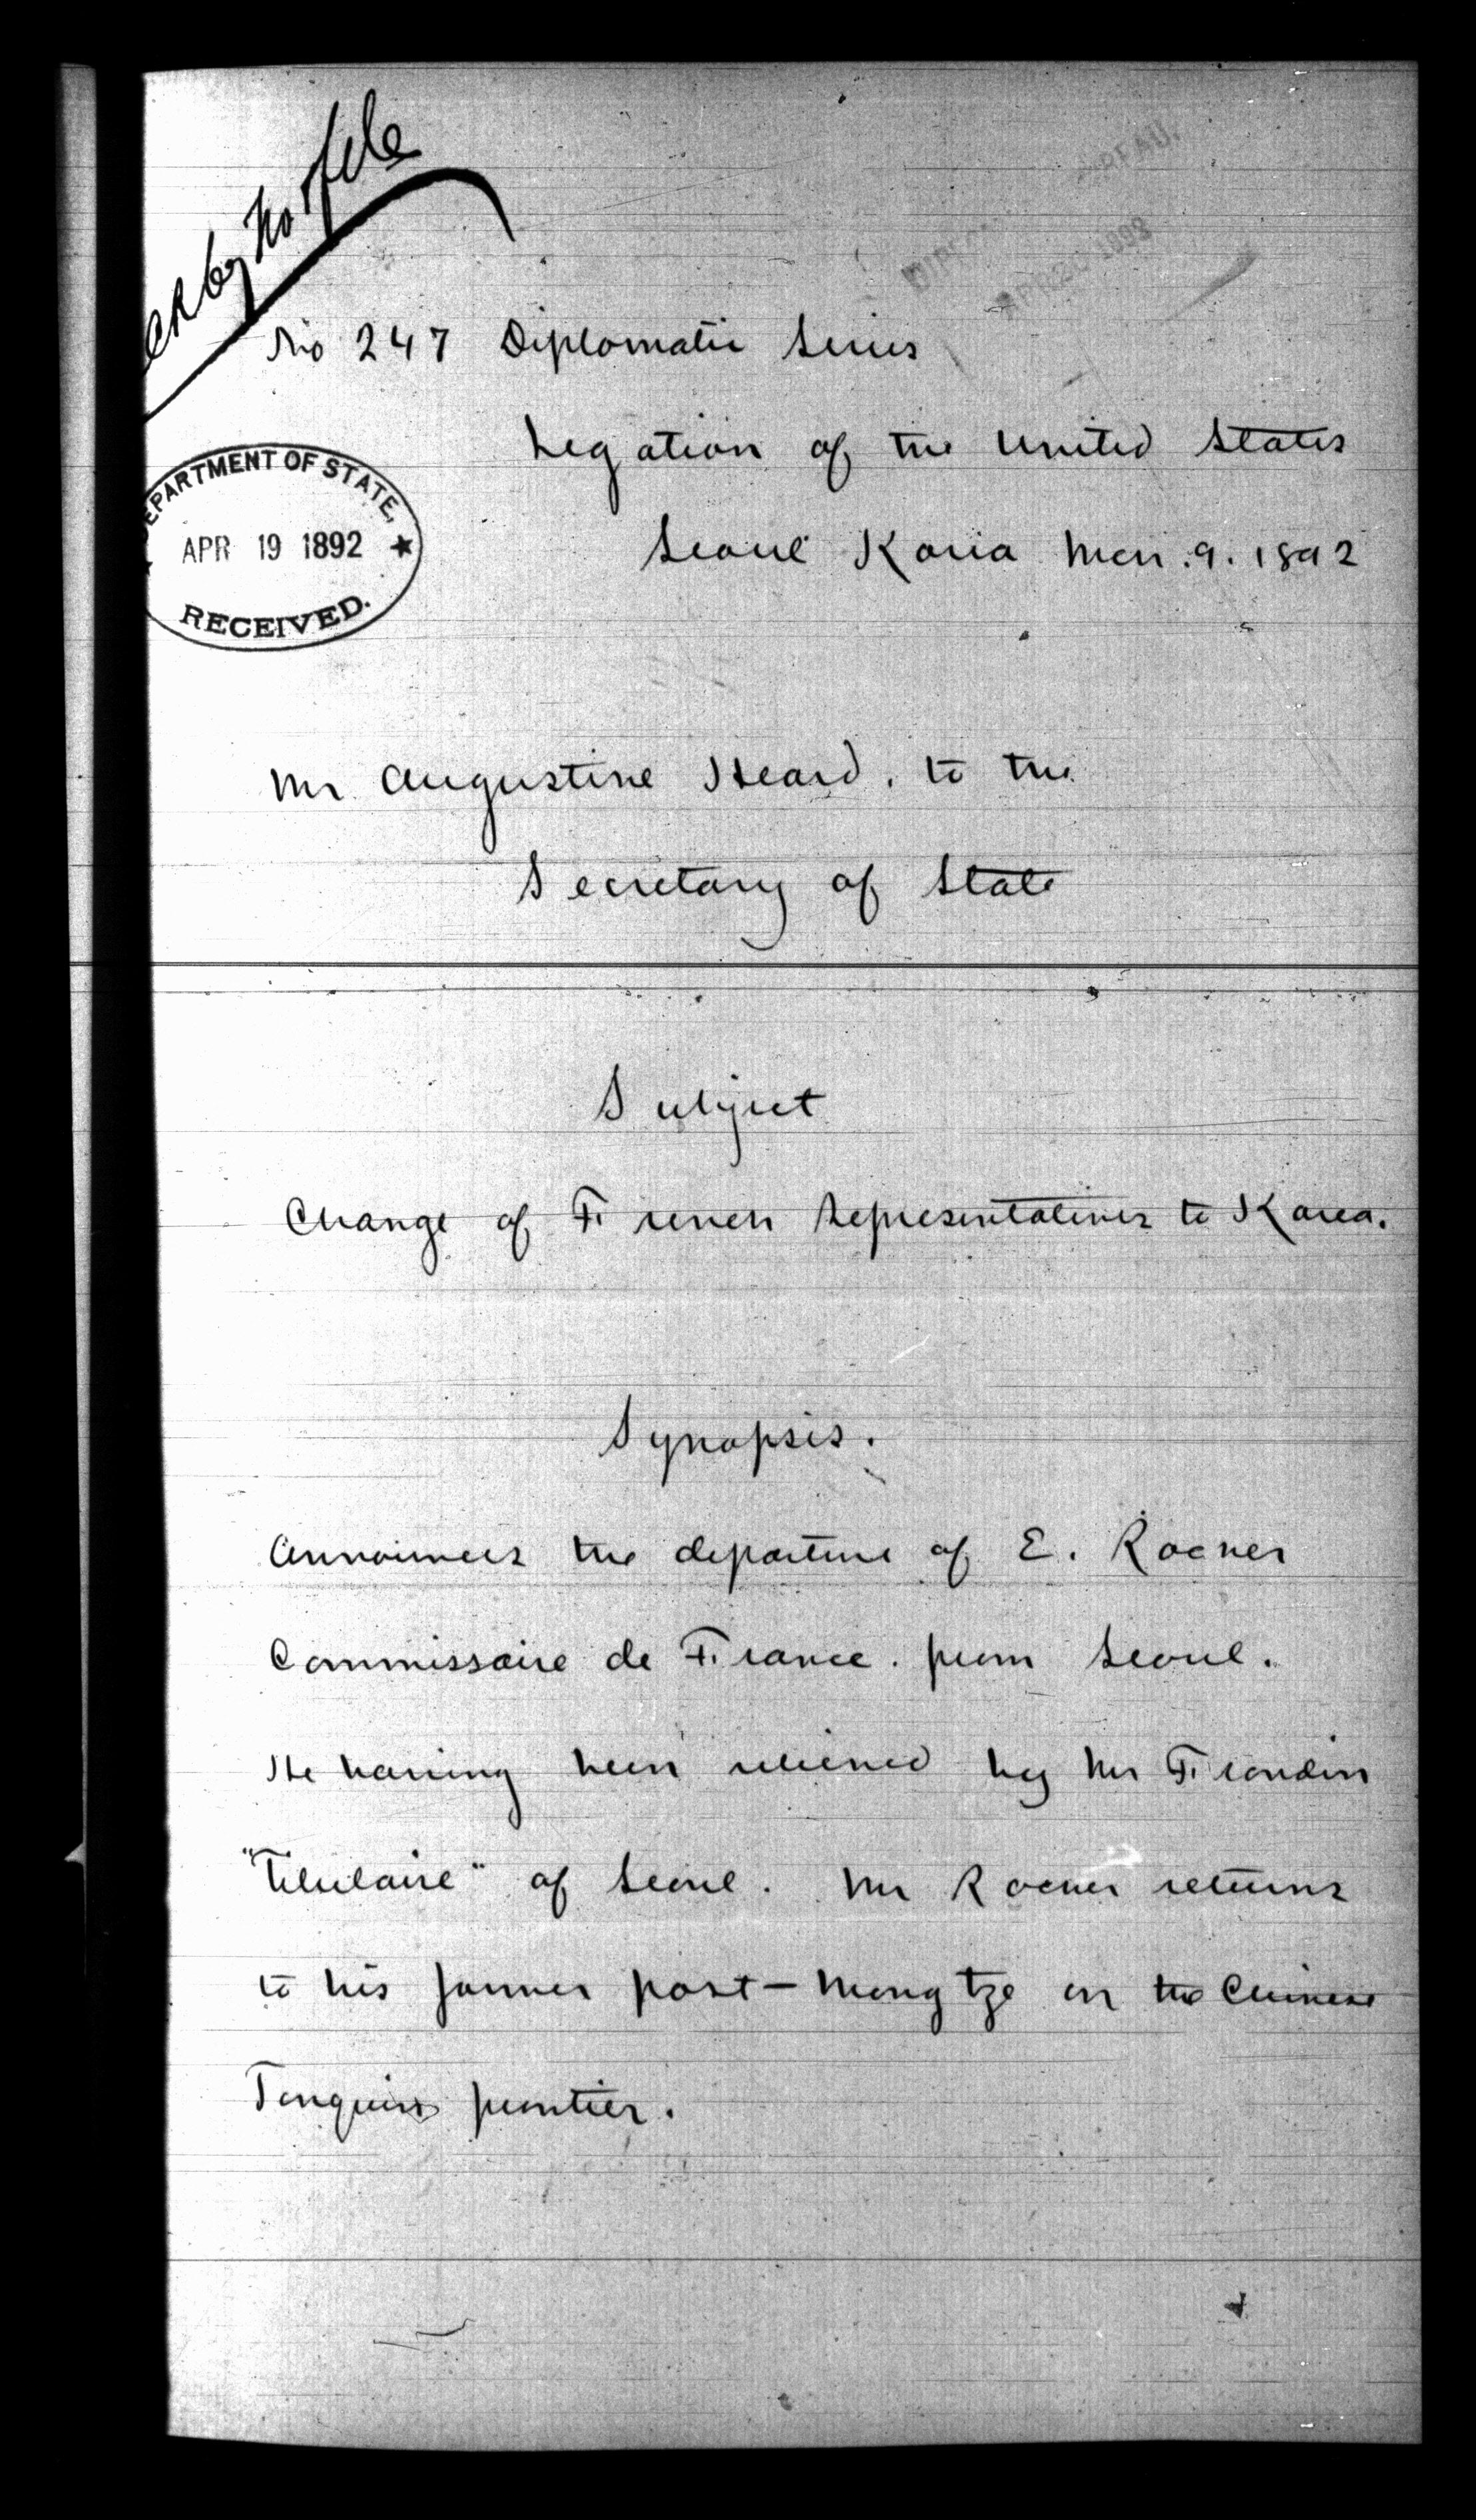 ack by no file
DIPLO
APR 20 1892
No 247 Diplomatic Series
Legation of the United States
Seoul Korea Mch. 9. 1892
DEPARTMENT OF STATE,
APR 19 1892
RECEIVED.
Mr Augustine Heard, to the
Secretary of State
Subject
Change of French Representatives to Korea.
Synopsis.
Announces the departure of E. Rocher
Commissaire de France. from Seoul.
He having been relieved by Mr Frandin
"Titulaire" of Seoul. Mr Rocher returns
to his former post - Mengtze on the Chinese
Tonquin frontier.